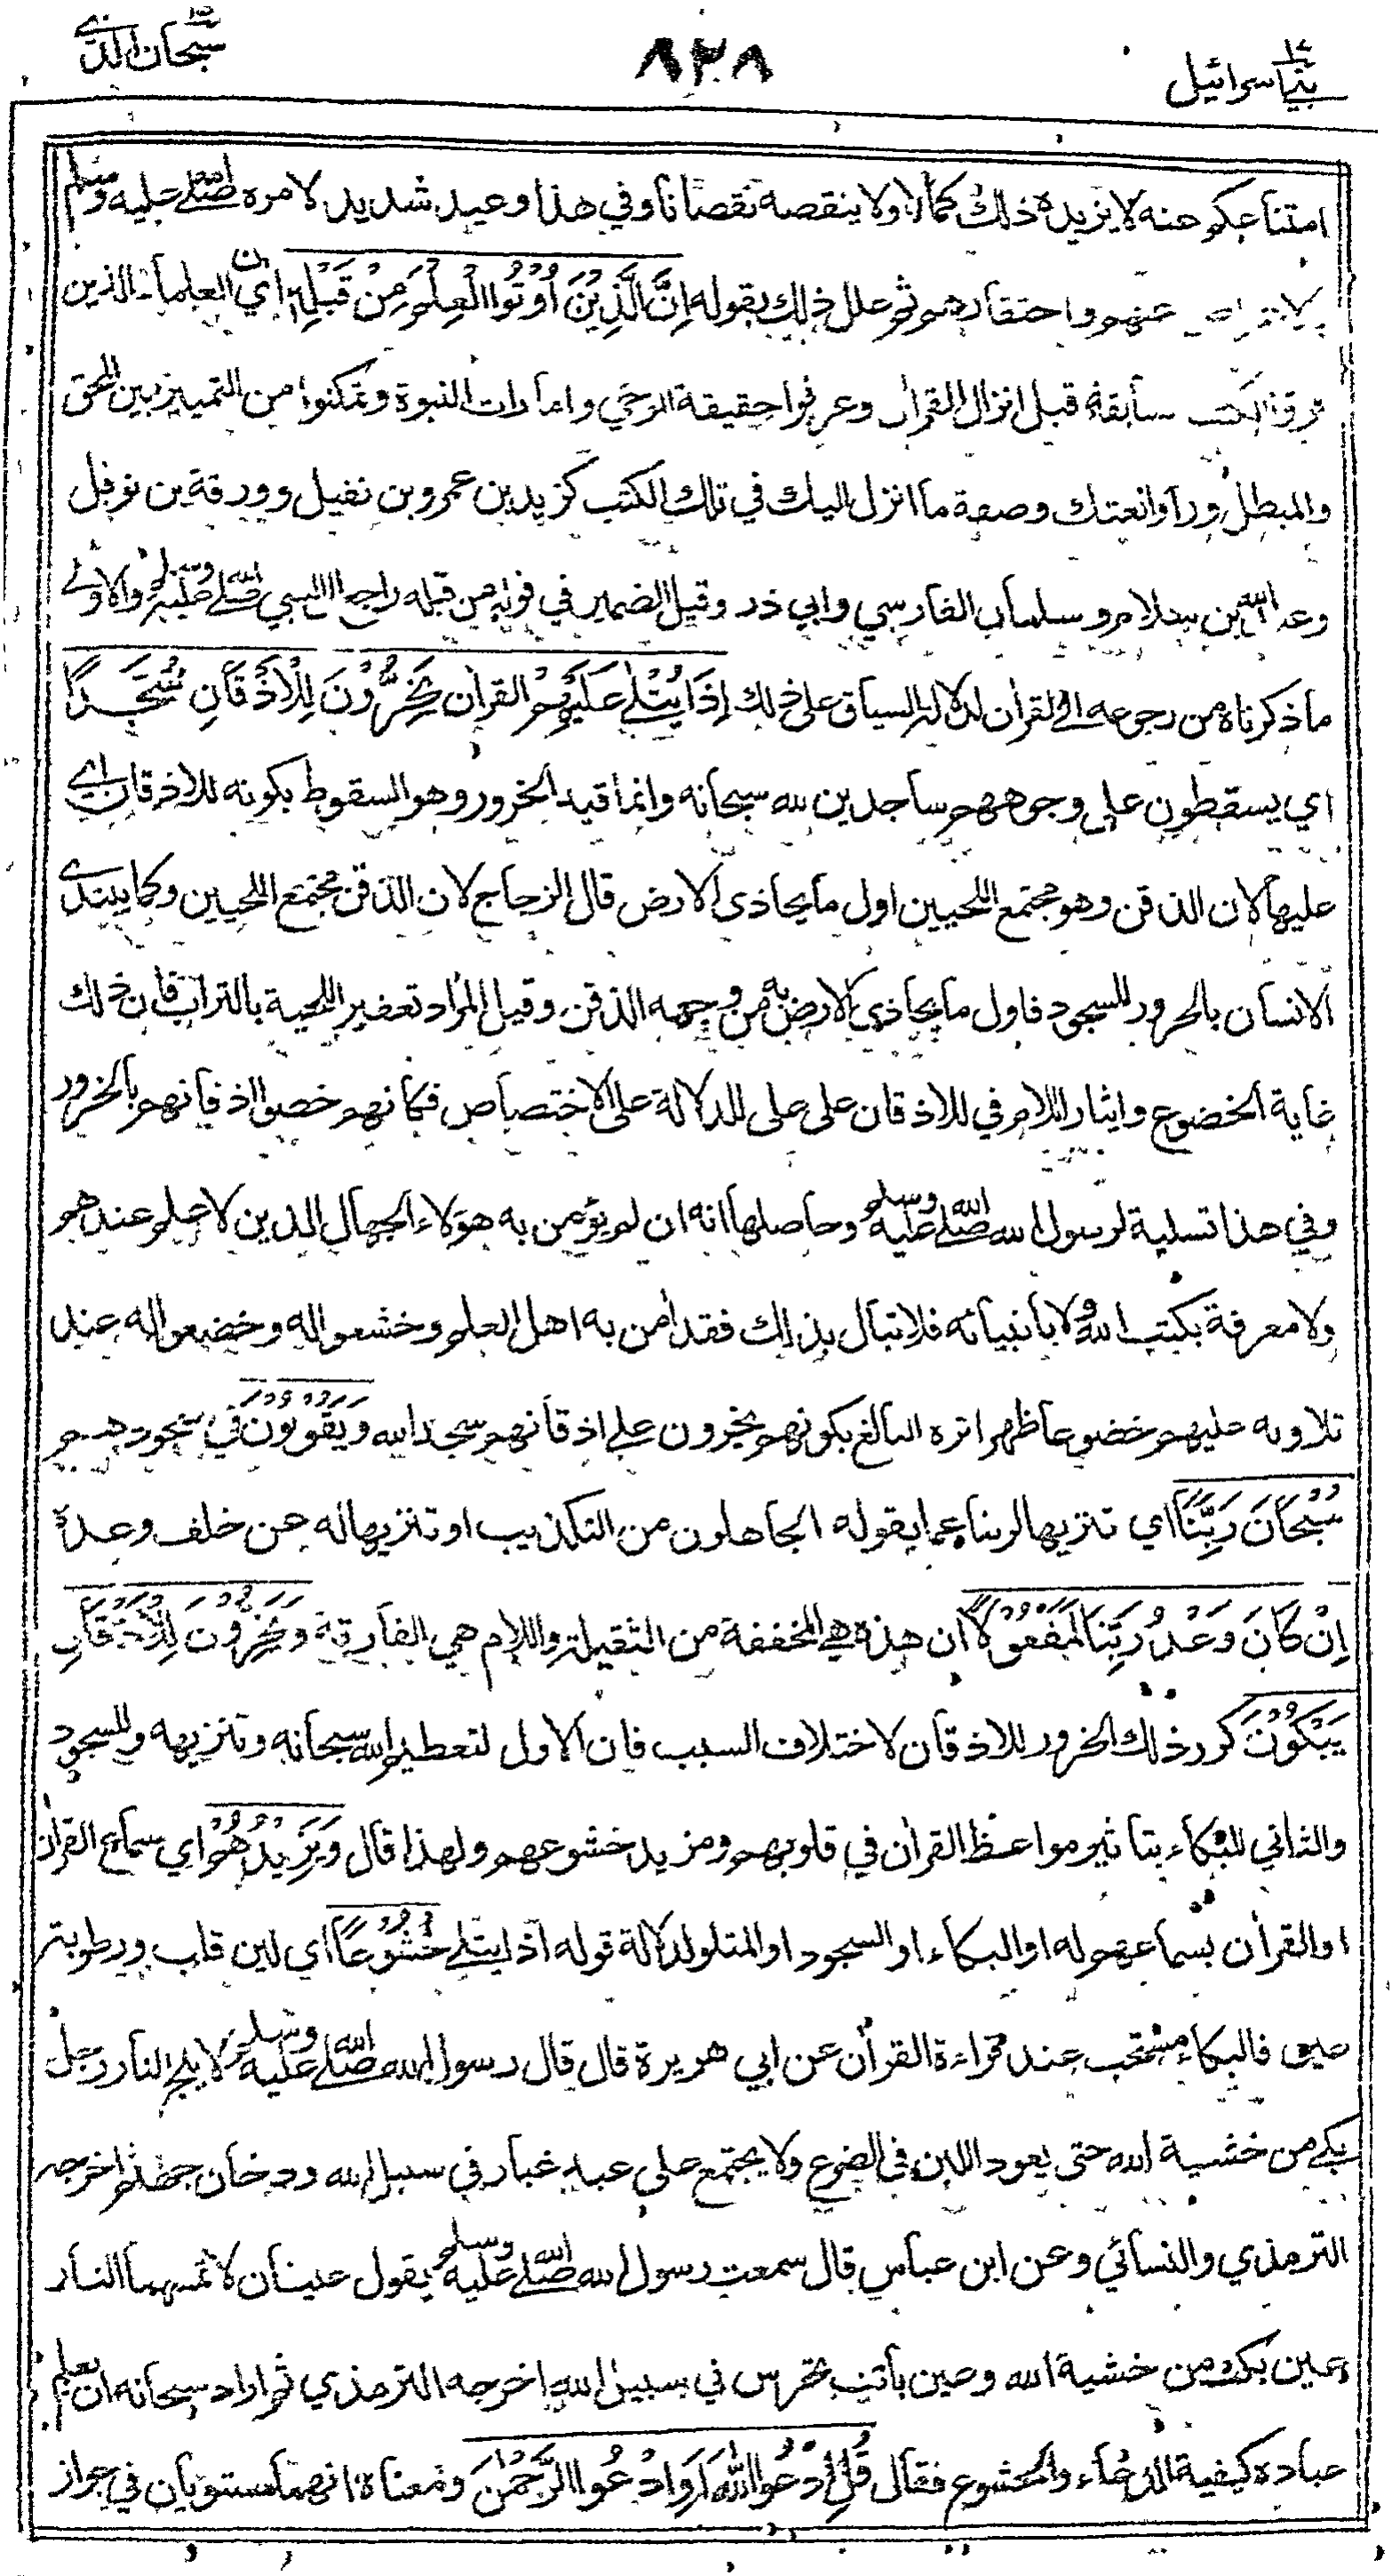 بني اسرائيل ١٧
٨٢٨
سبحان الذي ١٥
امتناعكم عنه لا يزيده ذلك كمالا ولا ينقصه نقصانا وفي هذا وعيد شديد لامره صلى الله عليه وسلم
عنهم واحتقارهم ثم علل ذلك بقوله اِنَّ الَّذِيْنَ اُوْتُوا الْعِلْمَ مِنْ قَبْلِهٖ اي ان العلماء الذين
سابقة قبل انزال القرأن وعرفوا حقيقة الوحي وامارات النبوة وتمكنوا من التمييز بين المحق
والمبطل ورأوا نعتك وصفة ما انزل اليك في تلك الكتب كزيد بن عمرو بن نفيل وورقة بن نوفل
وعبد الله بن سلام وسلمان الفارسي وابي ذر وقيل الضمير في قوله من قبله راجع الى النبي صلى الله عليه وسلم والاولى
ما ذكرناه من رجوعه الى القرأن لدلالة السياق على ذلك اِذَا يُتْلٰى عَلَيْهِمْ القرأن يَخِرُّوْنَ لِلْاَذْقَانِ سُجَّدًا
اي يسقطون على وجوههم ساجدين لله سبحانه وانما قيد الخرور وهو السقوط بكونه للاذقان اي
عليها لان الذقن وهو مجتمع اللحيين اول ما يحاذى الارض قال الزجاج لان الذقن مجتمع اللحيين وكما يبتدى
الانسان بالخرور للسجود فاول ما يحاذي الارض به من وجهه الذقن وقيل المراد تعفير اللحية بالتراب فان ذلك
غاية الخضوع وايثار اللام في للاذقان على على للدلالة على الاختصاص فكانهم خصوا اذقانهم بالخرور
وفي هذا تسلية لرسول الله صلى الله عليه وسلم وحاصلها انه ان لم يؤمن به هؤلاء الجهال الذين لا علم عندهم
ولا معرفة بكتب الله ولا بانبيائه فلا تبال بذلك فقد أمن به اهل العلم وخشعوا له وخضعوا له عند
تلاوته عليهم خضوعا ظهر اثره البالغ بكونهم يخرون على اذقانهم سجدا لله وَيَقُوْلُوْنَ في سجودهم
سُبْحَانَ رَبِّنَا اي تنزيها لربنا عما يقوله الجاهلون من التكذيب او تنزيها له عن خلف وعده
اِنْ كَانَ وَعْدُ رَبِّنَا لَمَفْعُوْلًا ان هذه هي المخففة من الثقيلة واللام هي الفارقة وَيَخِرُّوْنَ لِلْاَذْقَانِ
يَبْكُوْنَ كرر ذلك الخرور للاذقان لاختلاف السبب فان الاول لتعظيم الله سبحانه وتنزيهه وللسجود
والثاني للبكاء بتاثير مواعظ القرأن في قلوبهم ومزيد خشوعهم ولهذا قال وَيَزِيْدُهُمْ اي سماع القرأن
او القرأن بسماعهم له او البكاء او السجود او المتلو لدلالة قوله اذا يتلى خُشُوْعًا اي لين قلب ورطوبة
عين فالبكاء مستحب عند قراءة القرأن عن ابي هريرة قال قال رسول الله صلى الله عليه وسلم لا يلج النار رجل
بكى من خشية الله حتى يعود اللبن في الضرع ولا يجتمع على عبد غبار في سبيل الله ودخان جهنم اخرجه
الترمذي والنسائي وعن ابن عباس قال سمعت رسول الله صلى الله عليه وسلم يقول عينان لا تمسهما النار
عين بكت من خشية الله وعين باتت تحرس في سبيل الله اخرجه الترمذي ثم اراد سبحانه ان يعلم
عباده كيفية الدعاء والخشوع فقال قُلِ ادْعُوا اللّٰهَ اَوِ ادْعُوا الرَّحْمٰنَ ومعناه انهما مستويان في جواز